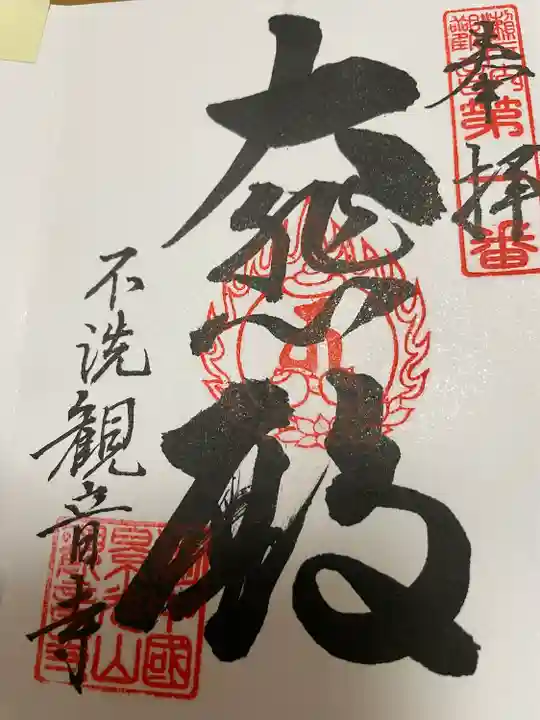 奉拝
第一番
大悲殿
不洗観音寺